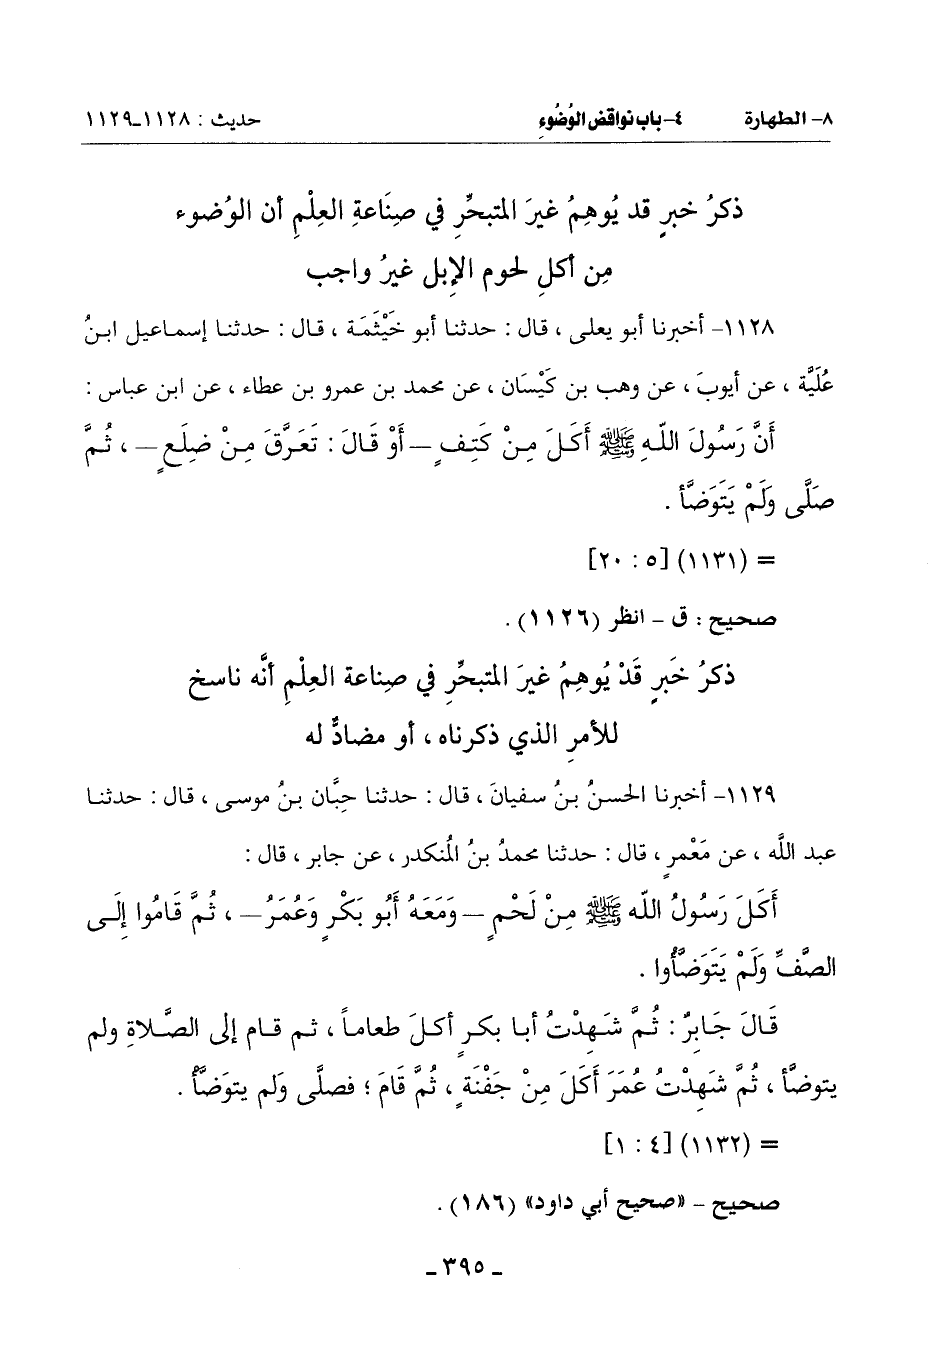 ٨- الطهارة ٤- باب نواقض الوُضُوءِ حديث : ١١٢٨-١١٢٩
ذكرُ خبرٍ قد يُوهِمُ غيرَ المتبحِّرِ في صِنَاعةِ العِلْمِ أن الوُضوء
مِن أكلِ لحوم الإِبل غيرُ واجب
١١٢٨- أخبرنا أبو يعلى ، قال : حدثنا أبو خَيْثَمَة ، قال : حدثنا إسماعيل ابنُ
عُلَيَّة ، عن أيوبَ ، عن وهب بن كَيْسَان ، عن محمد بن عمرو بن عطاء ، عن ابن عباس :
أَنَّ رَسُولَ اللهِ ﷺ أَكَلَ مِنْ كَتِفٍ – أَوْ قَالَ : تَعَرَّقَ مِنْ ضِلَعٍ – ، ثُمَّ
صَلَّى وَلَمْ يَتَوَضَّأ .
= (١١٣١) [٥ : ٢٠]
صحيح : ق – انظر (١١٢٦) .
ذكرُ خَبَرٍ قَدْ يُوهِمُ غيرَ المتبحِّرِ في صِناعة العِلْمِ أنَّه ناسخ
للأمرِ الذي ذكرناه ، أو مضادٌّ له
١١٢٩- أخبرنا الحسنُ بنُ سفيانَ ، قال : حدثنا حِبَّان بنُ موسى ، قال : حدثنا
عبد الله ، عن مَعْمرٍ ، قال : حدثنا محمدُ بنُ المُنكدر ، عن جابر ، قال :
أَكَلَ رَسُولُ الله ﷺ مِنْ لَحْمٍ – وَمَعَهُ أَبُو بَكْرٍ وَعُمَرُ – ، ثُمَّ قَامُوا إِلَى
الصَّفِّ وَلَمْ يَتَوَضَّأُوا .
قَالَ جَابِرٌ : ثُمَّ شَهِدْتُ أبا بكرٍ أكلَ طعاماً ، ثم قام إلى الصَّلاةِ ولم
يتوضَّأ ، ثُمَّ شَهِدْتُ عُمَرَ أَكَلَ مِنْ جَفْنَةٍ ، ثُمَّ قَامَ ؛ فصلَّى وَلم يتوَضَّأْ .
= (١١٣٢) [٤ : ١]
صحيح – «صحيح أبي داود» (١٨٦) .
– ٣٩٥ –